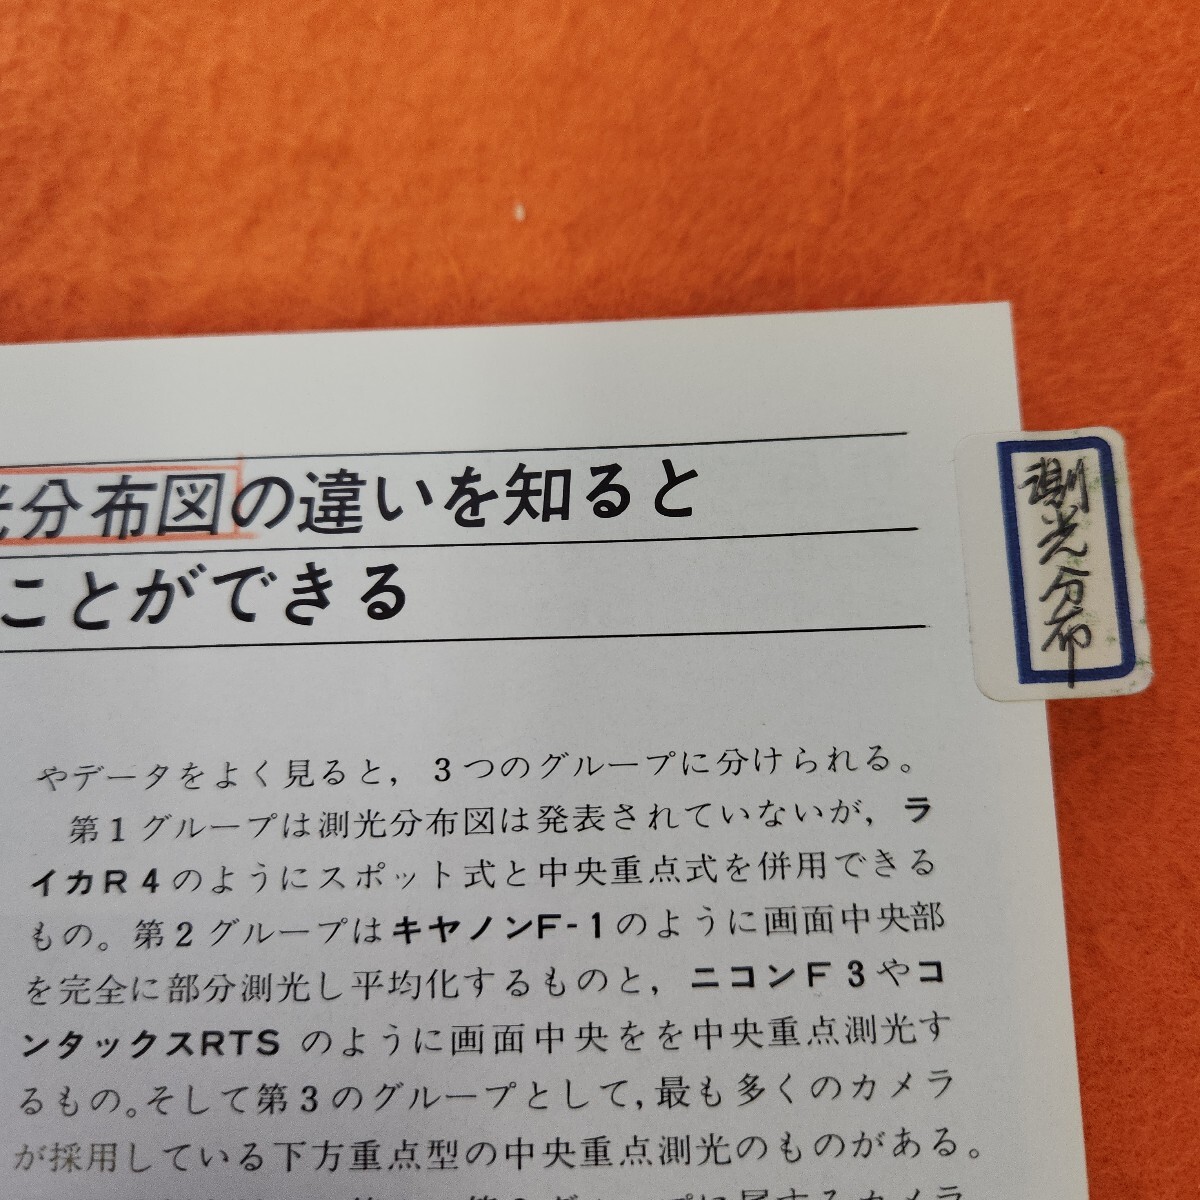 光分布図の違いを知ると
ことができる
測光分布
やデータをよく見ると，3つのグループに分けられる。
第1グループは測光分布図は発表されていないが，ラ
イカR4のようにスポット式と中央重点式を併用できる
もの。第2グループはキヤノンF-1のように画面中央部
を完全に部分測光し平均化するものと，ニコンF3やコ
ンタックスRTSのように画面中央をを中央重点測光す
るもの。そして第3のグループとして，最も多くのカメラ
が採用している下方重点型の中央重点測光のものがある。